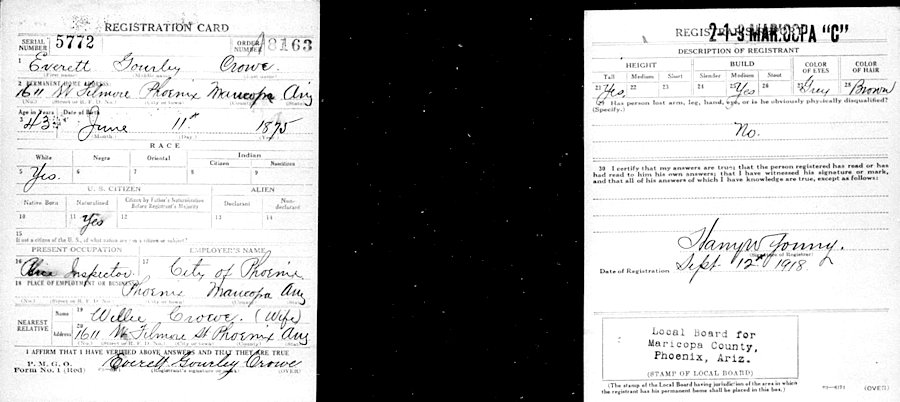 REGISTRATION CARD
SERIAL NUMBER 5772 ORDER NUMBER 8163
1 Everett Gourley Crowe
(First name) (Middle name) (Last name)
2 PERMANENT HOME ADDRESS:
1611 W Filmore Phoenix Maricopa Ariz
(No.) (Street or R. F. D. No.) (City or town) (County) (State)
Age in Years Date of Birth
3 43 4 June 11th 1875
(Month.) (Day.) (Year.)
RACE
White Negro Oriental Indian
Citizen Noncitizen
5 Yes. 6 7 8 9
U. S. CITIZEN ALIEN
Native Born Naturalized Citizen by Father's Naturalization Before Registrant's Majority Declarant Non-declarant
10 11 Yes 12 13 14
15
If not a citizen of the U. S., of what nation are you a citizen or subject?
PRESENT OCCUPATION EMPLOYER'S NAME
16 Inspector. 17 City of Phoenix
18 PLACE OF EMPLOYMENT OR BUSINESS:
Phoenix Maricopa Ariz
(No.) (Street or R. F. D. No.) (City or town) (County) (State)
NEAREST RELATIVE Name 19 Willie Crowe. (Wife)
Address 20 1611 W Filmore St Phoenix Ariz
(No.) (Street or R. F. D. No.) (City or town) (County) (State)
I AFFIRM THAT I HAVE VERIFIED ABOVE ANSWERS AND THAT THEY ARE TRUE
P. M. G. O.
Form No. 1 (Red) Everett Gourley Crowe
(Registrant's signature or mark) (OVER)
2-1-3 MARICOPA "C"
DESCRIPTION OF REGISTRANT
HEIGHT BUILD COLOR OF EYES COLOR OF HAIR
Tall Medium Short Slender Medium Stout
21 Yes. 22 23 24 25 Yes 26 27 Grey 28 Brown
29 Has person lost arm, leg, hand, eye, or is he obviously physically disqualified?
(Specify.)
No.
30 I certify that my answers are true; that the person registered has read or has
had read to him his own answers; that I have witnessed his signature or mark,
and that all of his answers of which I have knowledge are true, except as follows:
Harry W Young.
(Signature of Registrar)
Date of Registration Sept 12th 1918
Local Board for
Maricopa County,
Phoenix, Ariz.
(STAMP OF LOCAL BOARD)
(The stamp of the Local Board having jurisdiction of the area in which
the registrant has his permanent home shall be placed in this box.)
(OVER)